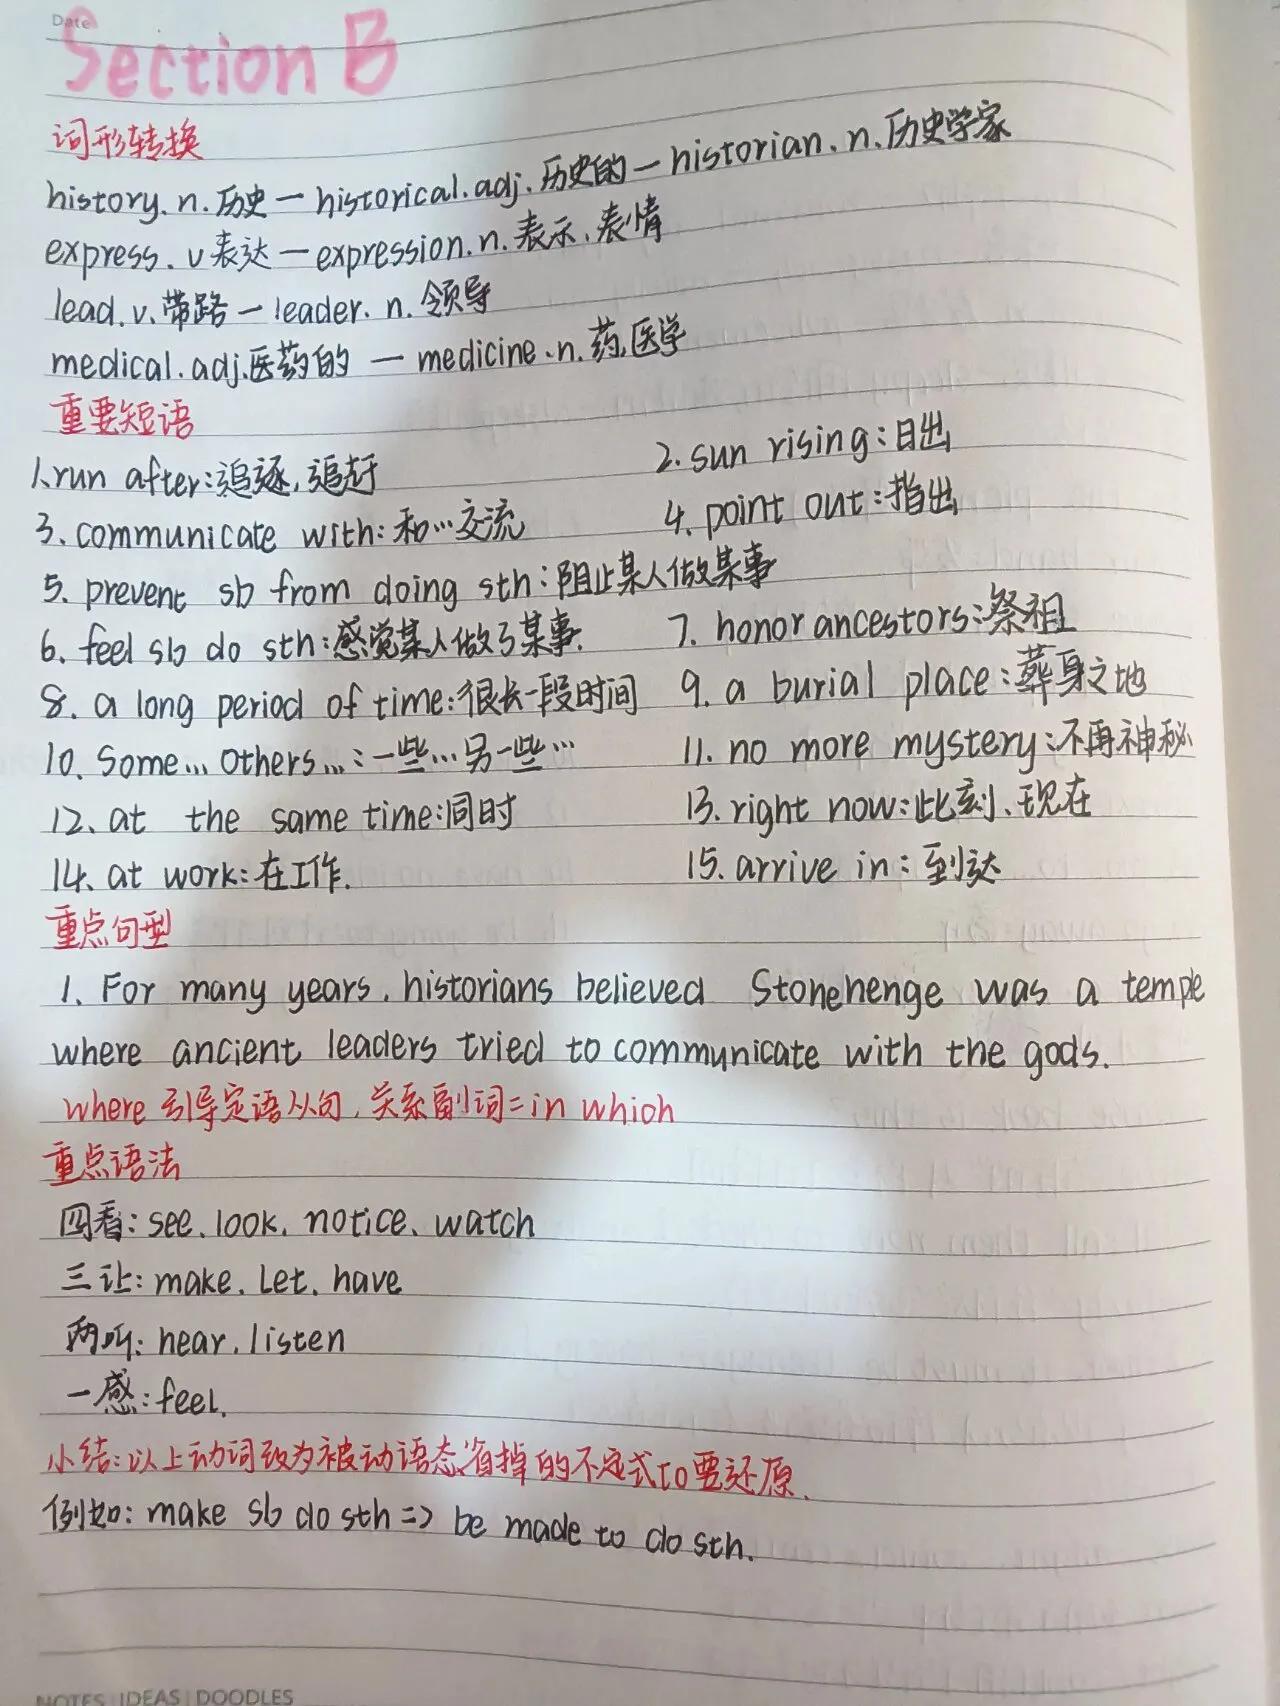 Date
Section B
词形转换
history. n. 历史 — historical. adj. 历史的 — historian. n. 历史学家
express. v 表达 — expression. n. 表示、表情
lead. v. 带路 — leader. n. 领导
medical. adj. 医药的 — medicine. n. 药, 医学
重要短语
1. run after: 追逐, 追赶 2. sun rising: 日出
3. communicate with: 和…交流 4. point out: 指出
5. prevent sb from doing sth: 阻止某人做某事
6. feel sb do sth: 感觉某人做了某事. 7. honor ancestors: 祭祖
8. a long period of time: 很长一段时间 9. a burial place: 葬身之地
10. Some... Others...: 一些…另一些… 11. no more mystery: 不再神秘
12. at the same time: 同时 13. right now: 此刻、现在
14. at work: 在工作. 15. arrive in: 到达
重点句型
1. For many years, historians believed Stonehenge was a temple
where ancient leaders tried to communicate with the gods.
where 引导定语从句, 关系副词 = in which
重点语法
四看: see. look. notice. watch
三让: make. Let. have
两听: hear. listen
一感: feel.
小结: 以上动词改为被动语态, 省掉的不定式to要还原.
例如: make sb do sth => be made to do sth.
NOTES | IDEAS | DOODLES